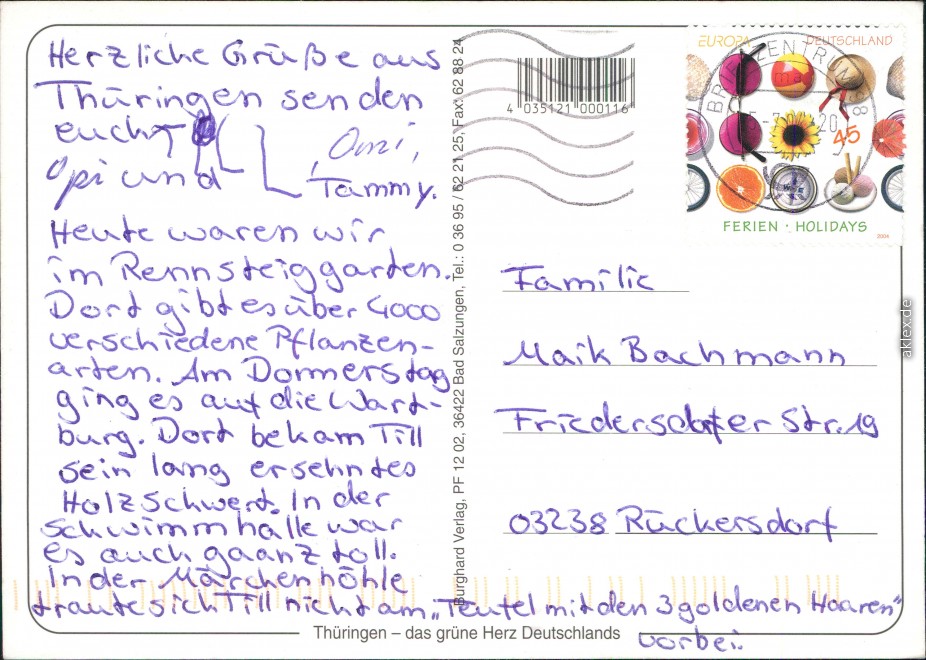 Herzliche Grüße aus
Thüringen senden
euch TILL, Omi,
Opi und Tammy.
Heute waren wir
im Rennsteiggarten.
Dort gibt es über 4000
verschiedene Pflanzen-
arten. Am Donnerstag
ging es auf die Wart-
burg. Dort bekam Till
sein lang ersehntes
Holzschwert. In der
Schwimmhalle war
es auch gaanz toll.
In der Märchenhöhle
traute sich Till nicht am „Teufel mit den 3 goldenen Haaren"
vorbei.
Thüringen – das grüne Herz Deutschlands
Burghard Verlag, PF 12 02, 36422 Bad Salzungen, Tel.: 0 36 95 / 62 21 25, Fax: 62 88 24
4 035121 000116
EUROPA DEUTSCHLAND
BRIEFZENTRUM
45
FERIEN · HOLIDAYS
2004
Familie
Maik Bachmann
Friedersdorfer Str. 19
03238 Rückersdorf
aklex.de